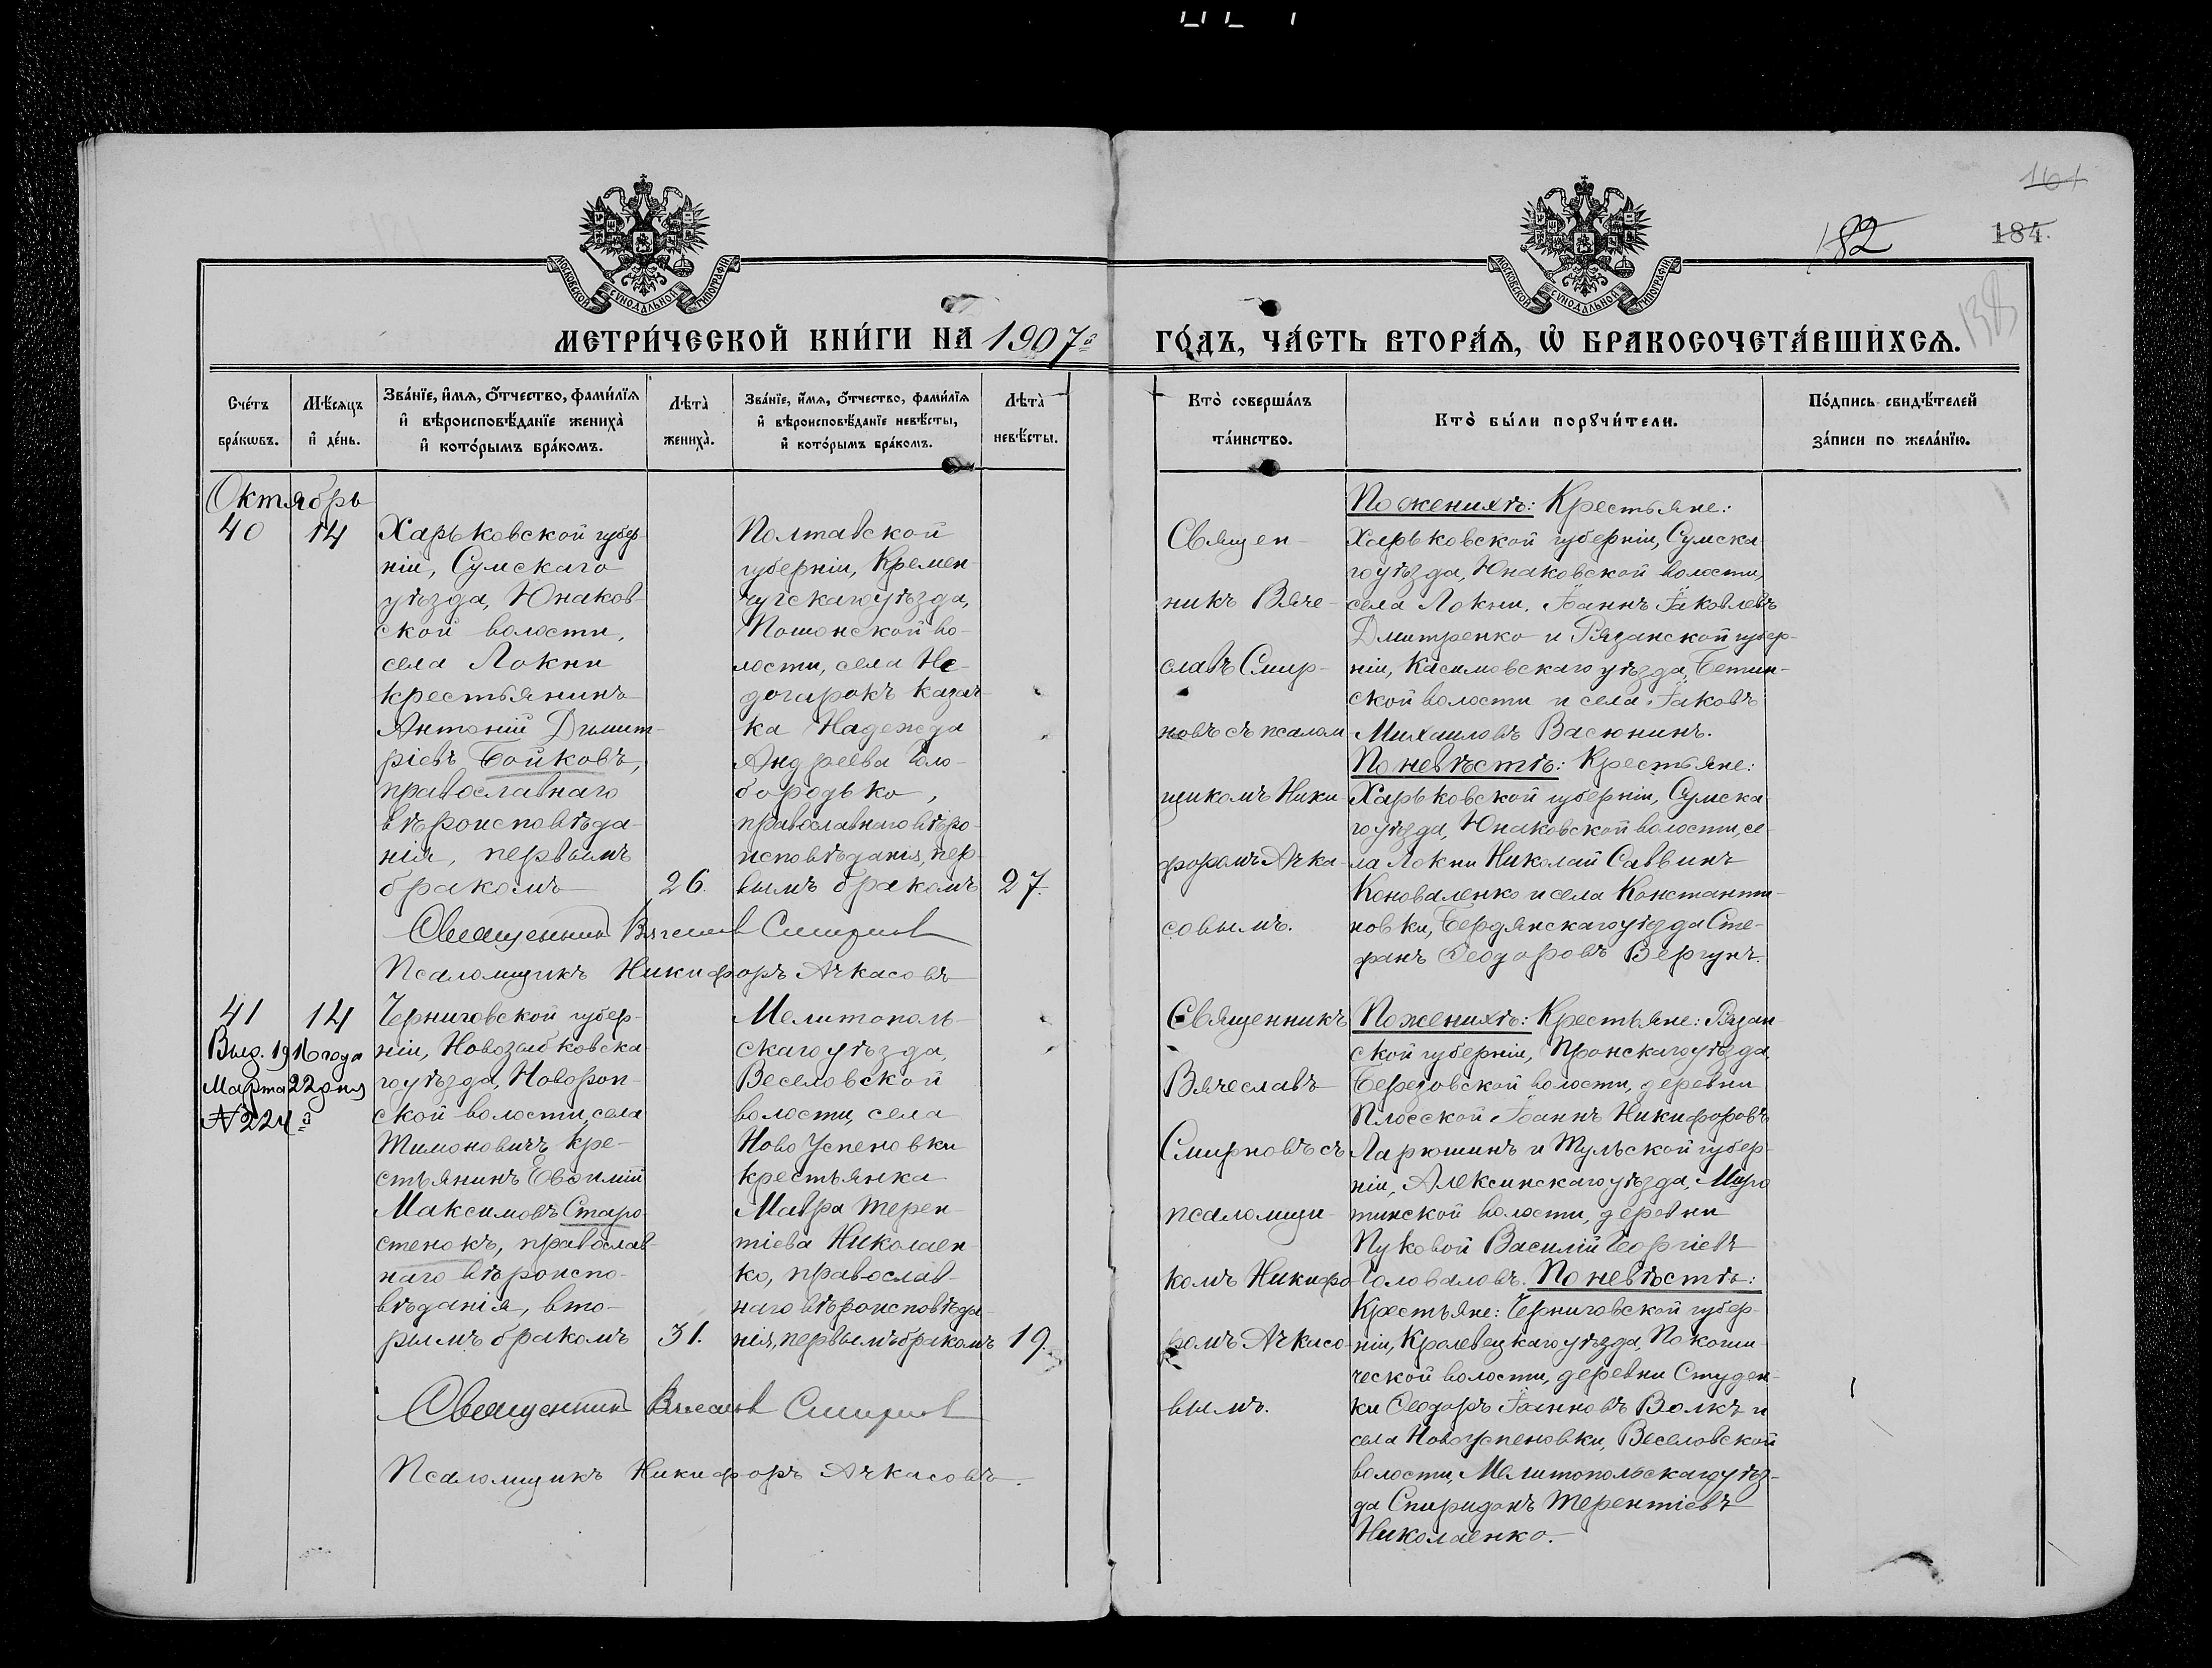 161
182
184.
138
МОСКОВСКОЙ СѴНОДАЛЬНОЙ ТИПОГРАФІИ
МОСКОВСКОЙ СѴНОДАЛЬНОЙ ТИПОГРАФІИ
МЕТРИ́ЧЕСКОЙ КНИ́ГИ НА 1907й
ГО́ДЪ, ЧА́СТЬ ВТОРА́Я, Ѡ҆ БРАКОСОЧЕТА́ВШИХСЯ.
Сче́тъ
бра́кѡвъ.
Мѣ́сяцъ
и҆ де́нь.
Зва́нїе, и҆́мя, ѻ҆́тчество, фами́лїя
и҆ вѣроисповѣ́данїе жениха̀
и҆ кото́рымъ бра́комъ.
Лѣта̀
жениха̀.
Зва́нїе, и҆́мя, ѻ҆́тчество, фами́лїя
и҆ вѣроисповѣ́данїе невѣ́сты,
и҆ кото́рымъ бра́комъ.
Лѣта̀
невѣ́сты.
Кто̀ соверша́лъ
та́инство.
Кто̀ бы́ли порꙋчи́тели.
По́дпись свидѣ́телей
за́писи по жела́нїю.
Октябрь
40
14
Харьковской губер-
ніи, Сумскаго
уѣзда, Юнаков-
ской волости,
села Локни
крестьянинъ
Антоній Димит-
ріевъ Бойковъ,
православнаго
вѣроисповѣда-
нія, первымъ
бракомъ
26.
Полтавской
губерніи, Кремен-
чугскаго уѣзда,
Пошонской во-
лости, села Не-
догарокъ казач-
ка Надежда
Андреева Голо-
бородько,
православнаго вѣро-
исповѣданія, пер-
вымъ бракомъ
27.
Священ-
никъ Вяче-
славъ Смир-
новъ съ псалом
щикомъ Ники
форомъ Ачка-
совымъ.
По женихѣ: Крестьяне:
Харьковской губерніи, Сумска-
го уѣзда, Юнаковской волости,
села Локни, Іоаннъ Іаковлевъ
Дмитренко и Рязанской губер-
ніи, Касимовскаго уѣзда, Бетин-
ской волости и села Іаковъ
Михаиловъ Васюнинъ.
По невѣстѣ: Крестьяне:
Харьковской губерніи, Сумска-
го уѣзда, Юнаковской волости, се-
ла Локни Николай Саввинъ
Коноваленко и села Константи-
новки, Бердянскаго уѣзда Сте-
фанъ Ѳеодоровъ Вергунъ.
Священникъ Вячеслав Смирнов
Псаломщикъ Никифоръ Ачкасовъ
41
14
Выд. 1916 года
Марта 22 дня
№ 224й
Черниговской губер-
ніи, Новозыбковска-
го уѣзда, Новороп-
ской волости, села
Тимоновичъ кре-
стьянинъ Евѳимій
Максимовъ Старо-
стенокъ, православ-
наго вѣроиспо-
вѣданія, вто-
рымъ бракомъ
31.
Мелитополь-
скаго уѣзда,
Веселовской
волости, села
Ново Успеновки
крестьянка
Мавра Терен-
тіева Николаен-
ко, православ-
наго вѣроисповѣда-
нія, первымъ бракомъ
19.
Священникъ
Вячеславъ
Смирновъ съ
псаломщи-
комъ Никифо-
ромъ Ачкасо-
вымъ.
По женихѣ: Крестьяне: Рязан-
ской губерніи, Пронскаго уѣзда,
Березовской волости, деревни
Плосской Іоаннъ Никифоровъ
Ларюшинъ и Тульской губер-
ніи, Алексинскаго уѣзда, Широ
тинской волости, деревни
Пуковой Василій Георгіевъ
Головаловъ. По невѣстѣ:
Крестьяне: Черниговской губер-
ніи, Кролевецкаго уѣзда, Покоши-
ческой волости, деревни Студен-
ки Ѳеодоръ Іоанновъ Волкъ и
села Новоуспеновки, Веселовской
волости, Мелитопольскаго уѣз-
да Спиридонъ Терентіевъ
Николаенко.
Священникъ Вячеслав Смирнов
Псаломщикъ Никифоръ Ачкасовъ.